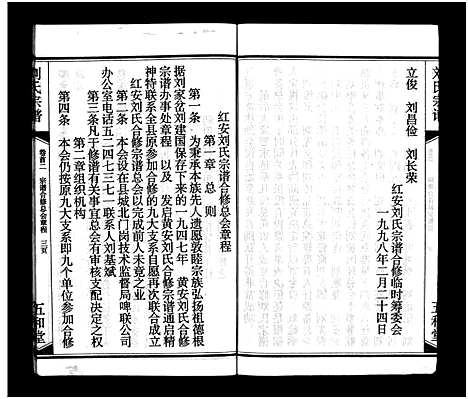 刘氏宗谱
立俊 刘昌俭 刘长荣
红安刘氏宗谱合修临时筹委会
一九九八年二月二十四日
五和堂
红安刘氏宗谱合修总会章程
第一章 总则
第一条 为秉承本族先人遗愿敦睦宗族弘扬祖德根
据刘家岔刘建国保存下来的一九四七年黄安刘氏合修
宗谱办事处章程 以及 发启黄安刘氏合修宗谱通启精
神特联系全县原参加合修的九大支系自愿再次联合成立
红安刘氏合修宗谱总会以完成前人未竟之业
第二条 本会设在县城北门岗技术监督局啤联公司
办公室电话五二四七三七一联系人刘基斌
第三条凡于修谱有关事宜总会有审核支配决定之权
第二章组织机构
第四条 本会仍按原九大支系即九个单位参加合修
刘氏宗谱
卷首二 宗谱合修总会章程 三页
五和堂